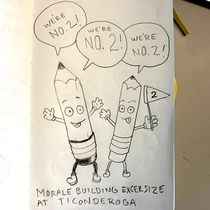 WE'RE
NO. 2!
WE'RE
NO. 2!
WE'RE
NO. 2!
2
MORALE BUILDING EXCERSIZE
AT TICONDEROGA